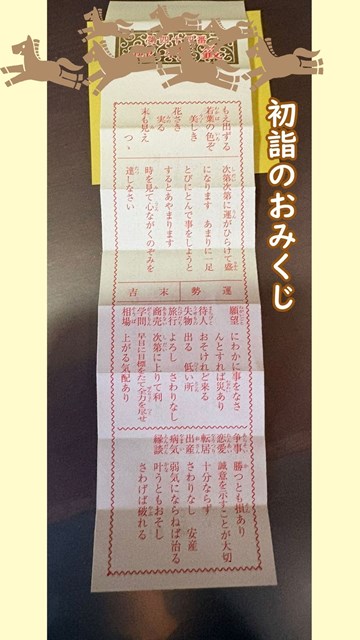 初詣のおみくじ
もえ出ずる
若葉の色ぞ
美しき
花さき
実る
末も見え
つゝ
次第次第に運がひらけて盛
になります あまりに一足
とびにとんで事をしようと
するとあやまります
時を見て心ながくのぞみを
達しなさい
運勢 末吉
願望 にわかに事をなさ
んとすれば災あり
待人 おそけれど来る
失物 出る 低い所
旅行 よろし さわりなし
商売 次第に上りて利
学問 早目に目標をたて全力を尽せ
相場 上がる気配あり
争事 勝つとも損あり
恋愛 誠意を示すことが大切
転居 十分ならず
出産 さわりなし 安産
病気 弱気にならねば治る
縁談 叶うともおそし
さわげば破れる